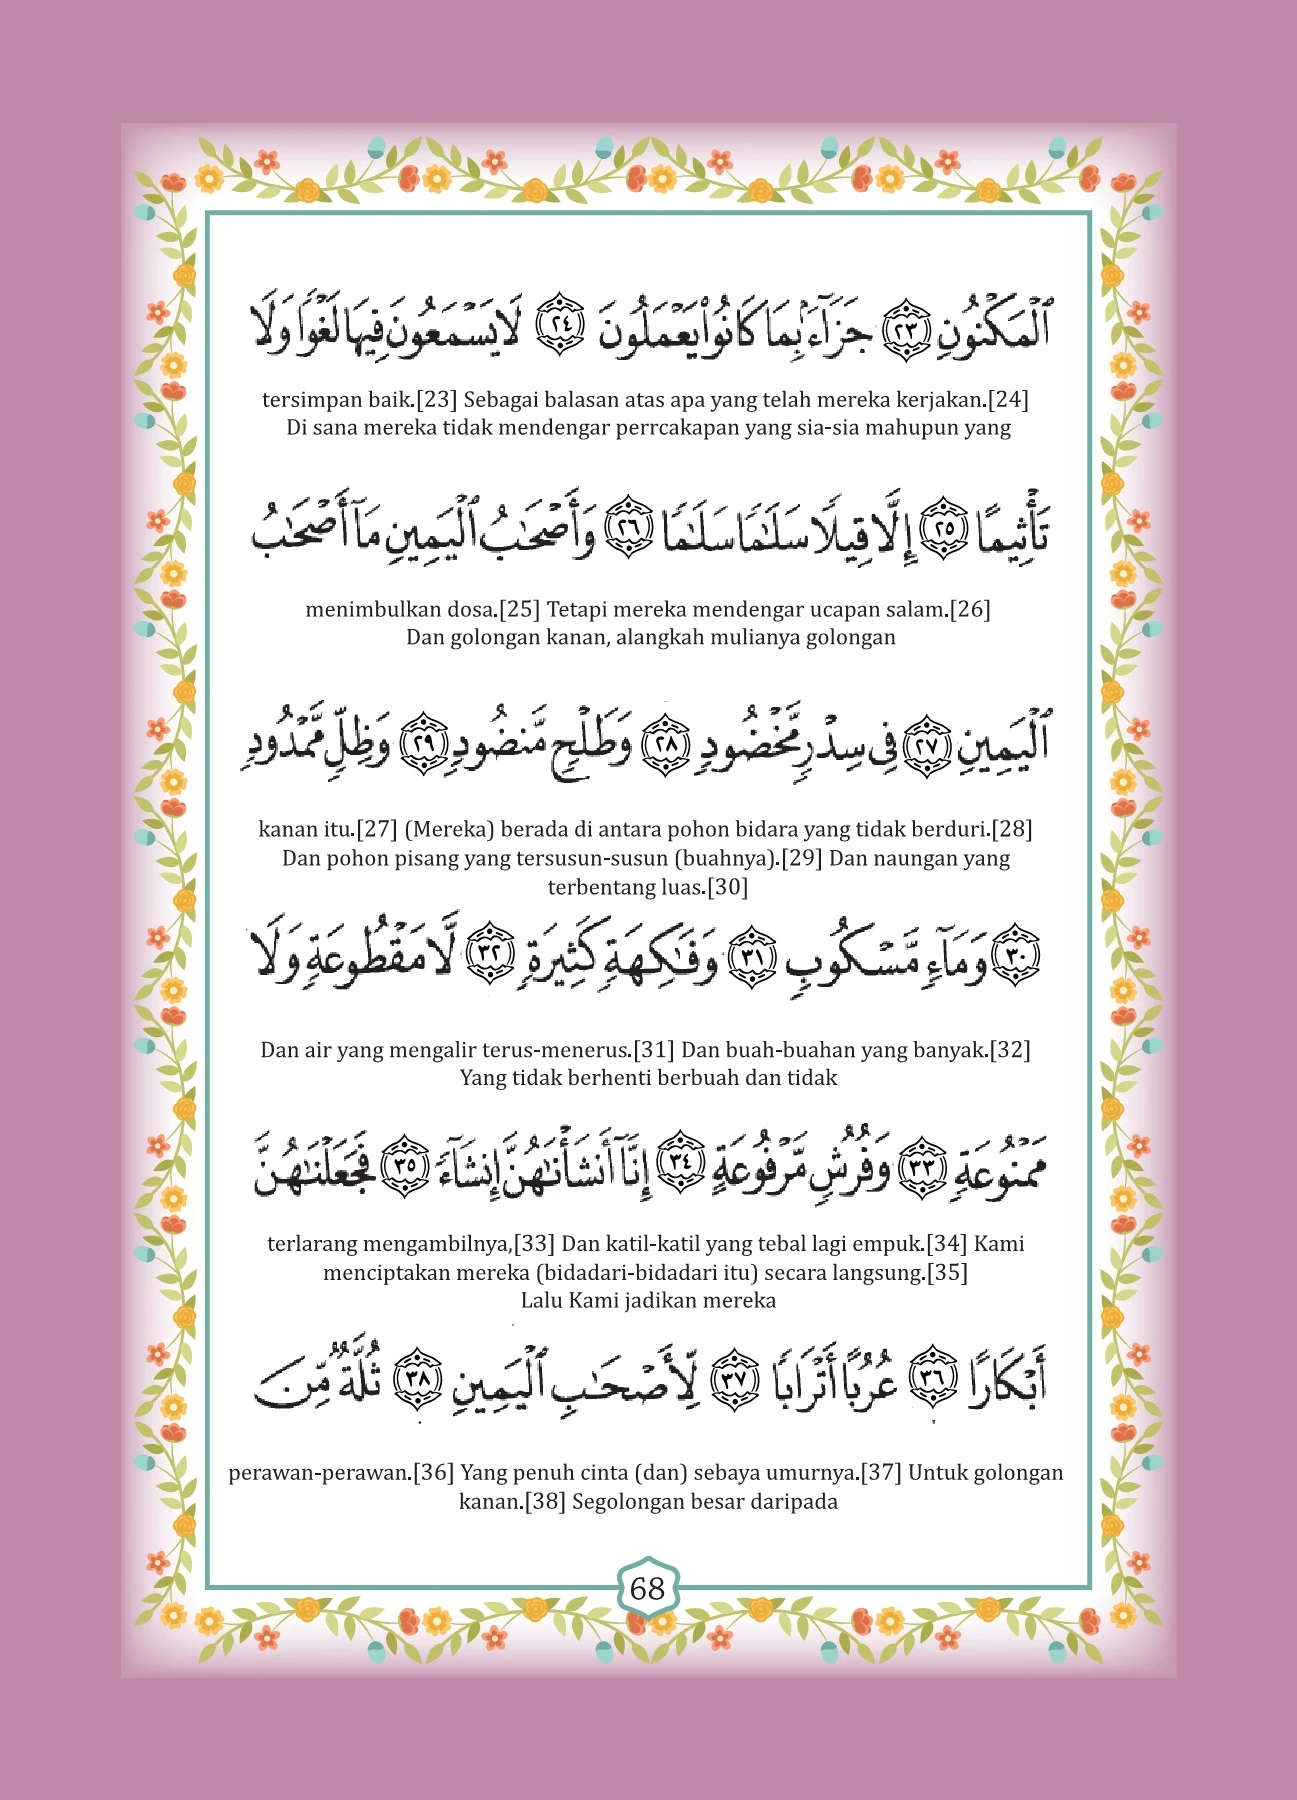 ٱلْمَكْنُونِ ٢٣ جَزَآءًۢ بِمَا كَانُوا۟ يَعْمَلُونَ ٢٤ لَا يَسْمَعُونَ فِيهَا لَغْوًا وَلَا
tersimpan baik.[23] Sebagai balasan atas apa yang telah mereka kerjakan.[24]
Di sana mereka tidak mendengar perrcakapan yang sia-sia mahupun yang
تَأْثِيمًا ٢٥ إِلَّا قِيلًا سَلَـٰمًا سَلَـٰمًا ٢٦ وَأَصْحَـٰبُ ٱلْيَمِينِ مَآ أَصْحَـٰبُ
menimbulkan dosa.[25] Tetapi mereka mendengar ucapan salam.[26]
Dan golongan kanan, alangkah mulianya golongan
ٱلْيَمِينِ ٢٧ فِى سِدْرٍ مَّخْضُودٍ ٢٨ وَطَلْحٍ مَّنضُودٍ ٢٩ وَظِلٍّ مَّمْدُودٍ
kanan itu.[27] (Mereka) berada di antara pohon bidara yang tidak berduri.[28]
Dan pohon pisang yang tersusun-susun (buahnya).[29] Dan naungan yang
terbentang luas.[30]
٣٠ وَمَآءٍ مَّسْكُوبٍ ٣١ وَفَـٰكِهَةٍ كَثِيرَةٍ ٣٢ لَّا مَقْطُوعَةٍ وَلَا
Dan air yang mengalir terus-menerus.[31] Dan buah-buahan yang banyak.[32]
Yang tidak berhenti berbuah dan tidak
مَمْنُوعَةٍ ٣٣ وَفُرُشٍ مَّرْفُوعَةٍ ٣٤ إِنَّآ أَنشَأْنَـٰهُنَّ إِنشَآءً ٣٥ فَجَعَلْنَـٰهُنَّ
terlarang mengambilnya,[33] Dan katil-katil yang tebal lagi empuk.[34] Kami
menciptakan mereka (bidadari-bidadari itu) secara langsung.[35]
Lalu Kami jadikan mereka
أَبْكَارًا ٣٦ عُرُبًا أَتْرَابًا ٣٧ لِّأَصْحَـٰبِ ٱلْيَمِينِ ٣٨ ثُلَّةٌ مِّنَ
perawan-perawan.[36] Yang penuh cinta (dan) sebaya umurnya.[37] Untuk golongan
kanan.[38] Segolongan besar daripada
68